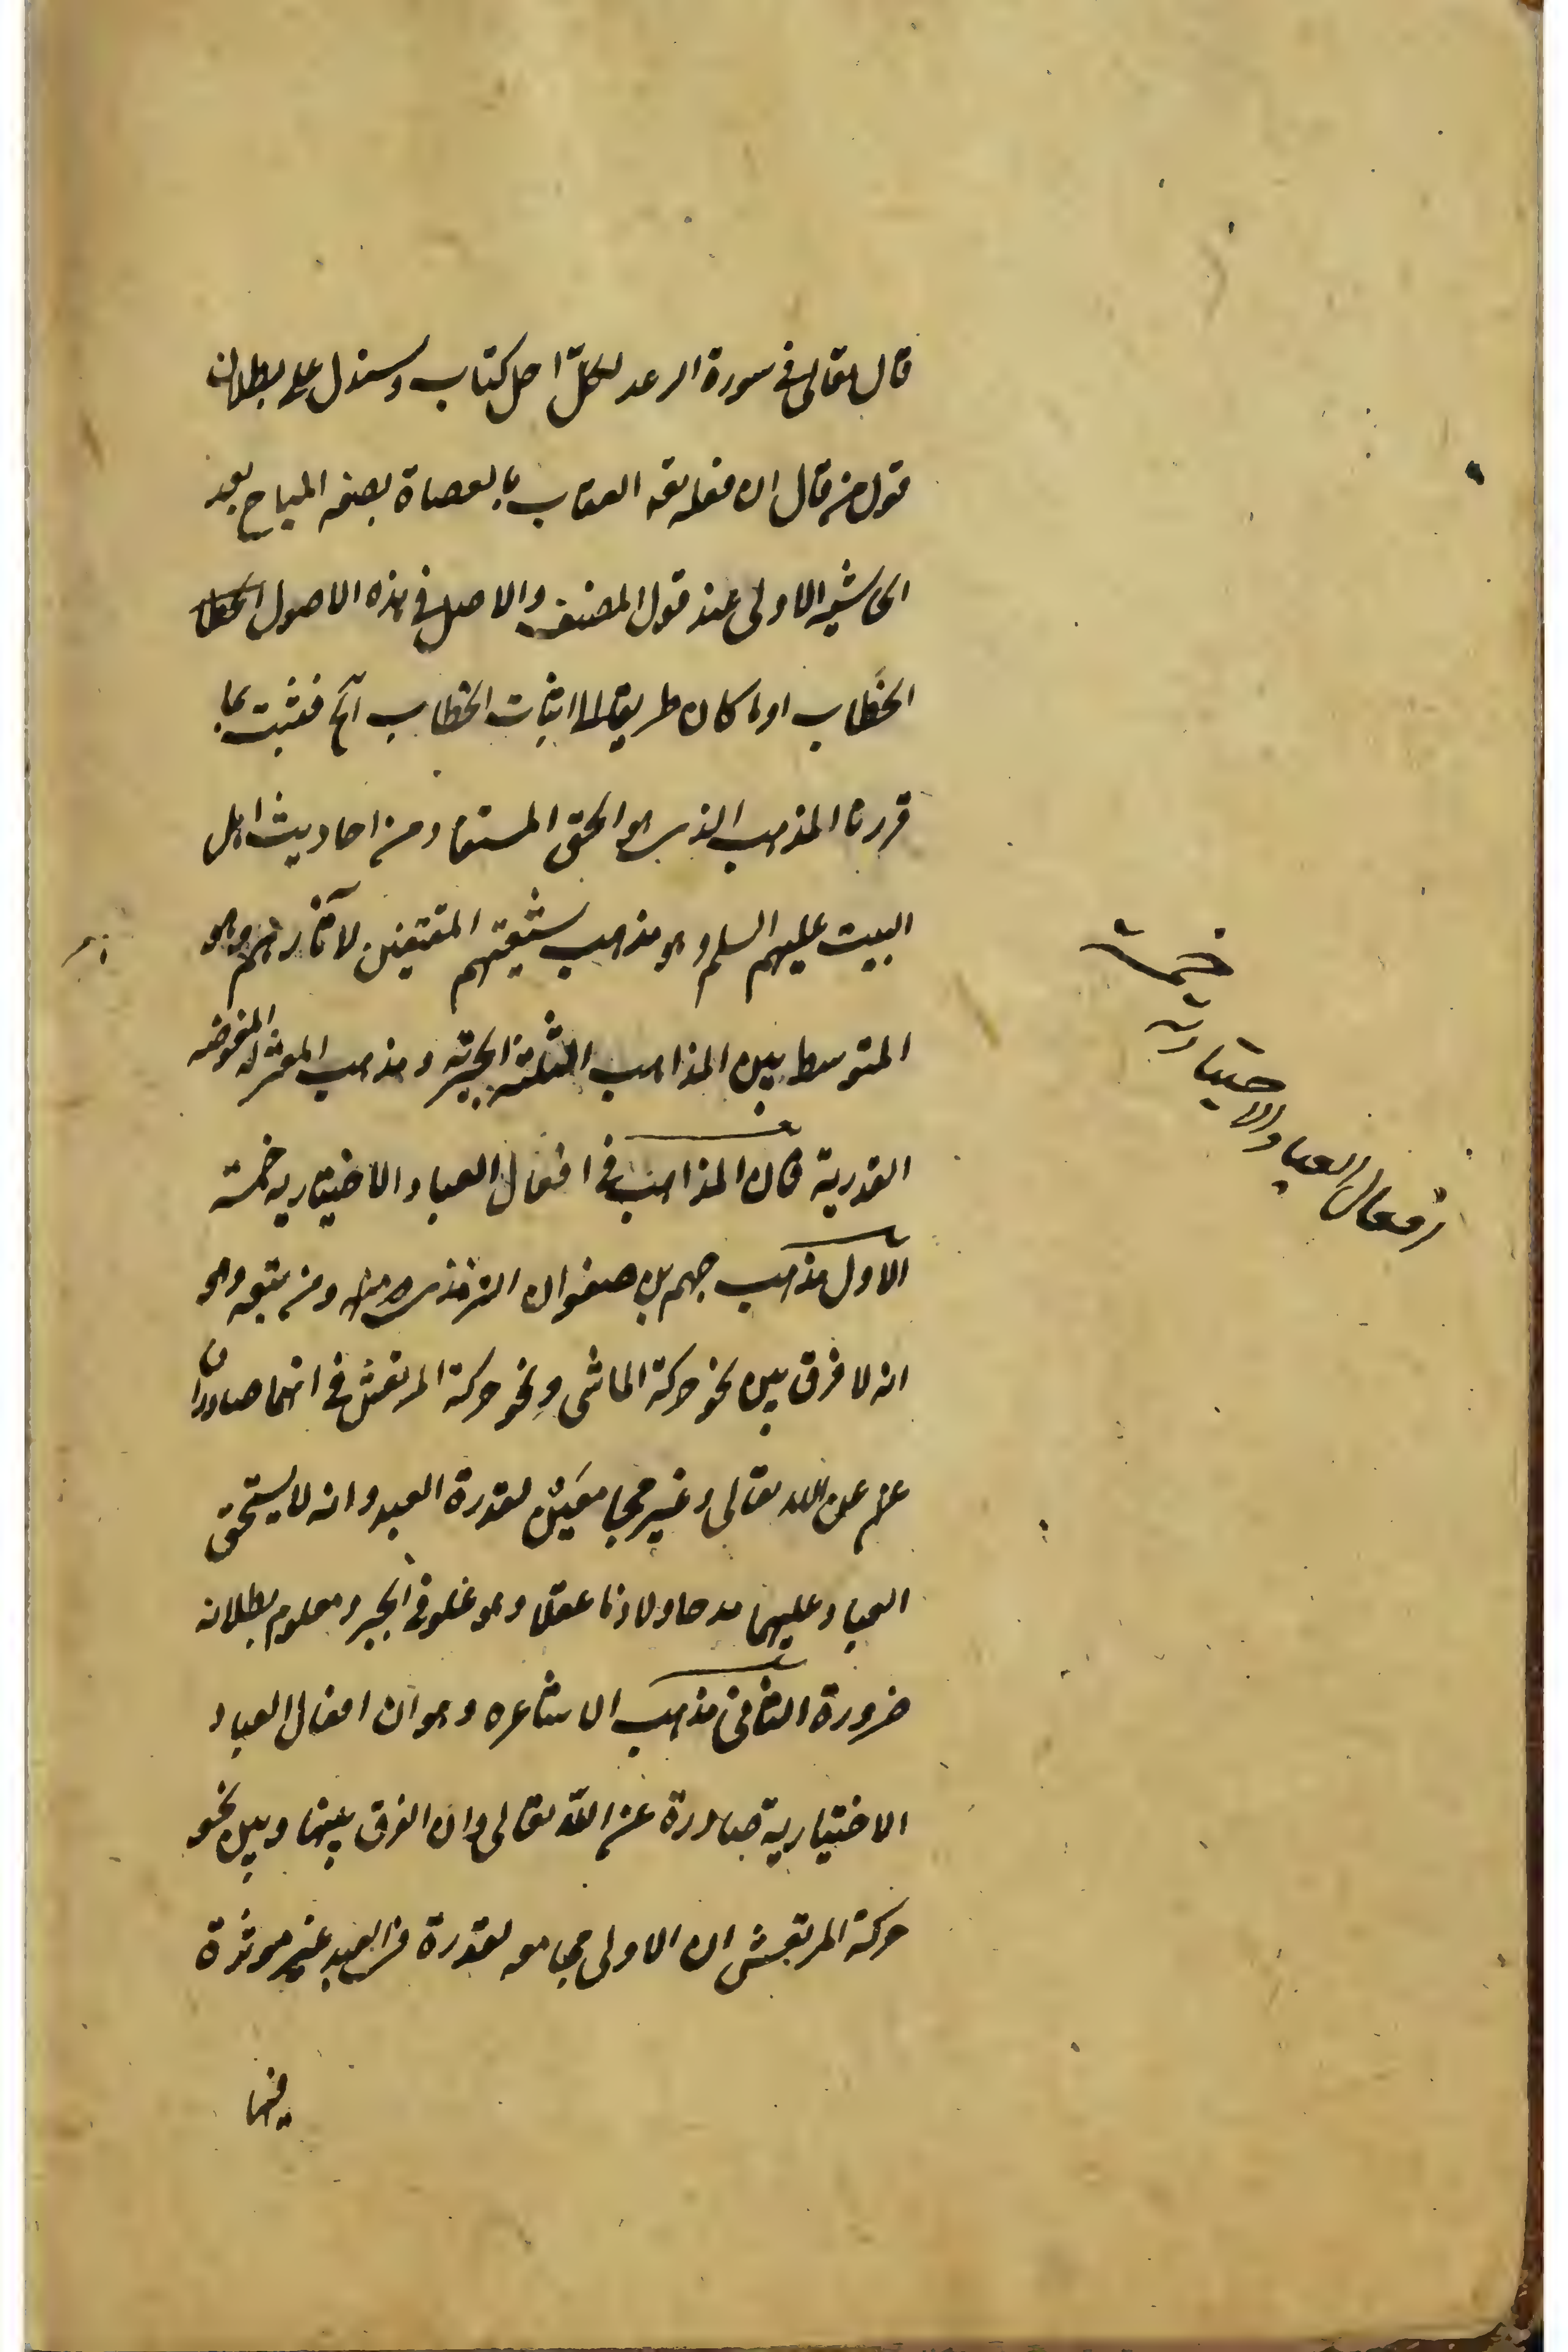 قال تعالى في سورة الرعد لكل اجل كتاب وسنذل على بطلان
قول من قال ان فعله تعه العقاب بالعصاة بصفه المباح بعد
الحاشيه الاولى عند قول المصنف والاصل في هذه الاصول الخطا
الخطاب اوما كان طريقا الى اثبات الخطاب آلخ فثبت بما
قررنا المذهب الذى هو الحق المستفاد من احاديث اهل
البيت عليهم السلم وهو مذهب شيعتهم المقتفين لاثارهم وهو
المتوسط بين المذاهب الثلثة الجبرية ومذهب المعتزله المفوضه
القدرية فان المذاهب في افعال العباد الاختياريه خمسة
الاول مذهب جهم بن صفوان الترمذى ومن تبعه وهو
انه لا فرق بين نحو حركة الماشى ونحو حركة المرتعش في انهما صادران
عن الله تعالى وغير مجامعين لقدرة العبد وانه لا يستحق
العباد عليهما مدحا ولا ذما عقلا وهو غلو في الجبر ومعلوم بطلانه
ضرورة الثاني مذهب الاشاعره وهو ان افعال العباد
الاختيارية صادرة عن الله تعالى وان الفرق بينها وبين نحو
حركة المرتعش ان الاولى مجامعه لقدرة من العبد غير موثرة
فيها
افعال العباد الاختيارية خمسة